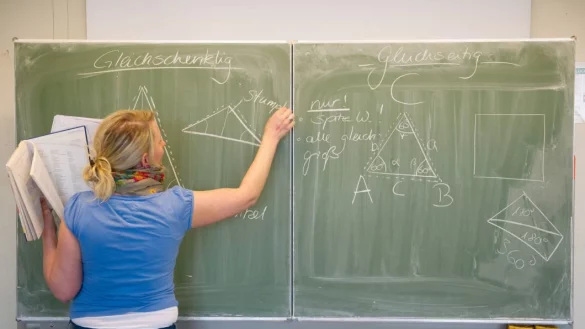 Gleichschenklig
Stump
Gleichseitig
C
nur!
spitze W.!
alle gleich
groß
b
a
α
60
A
C
B
110°
180°
60°